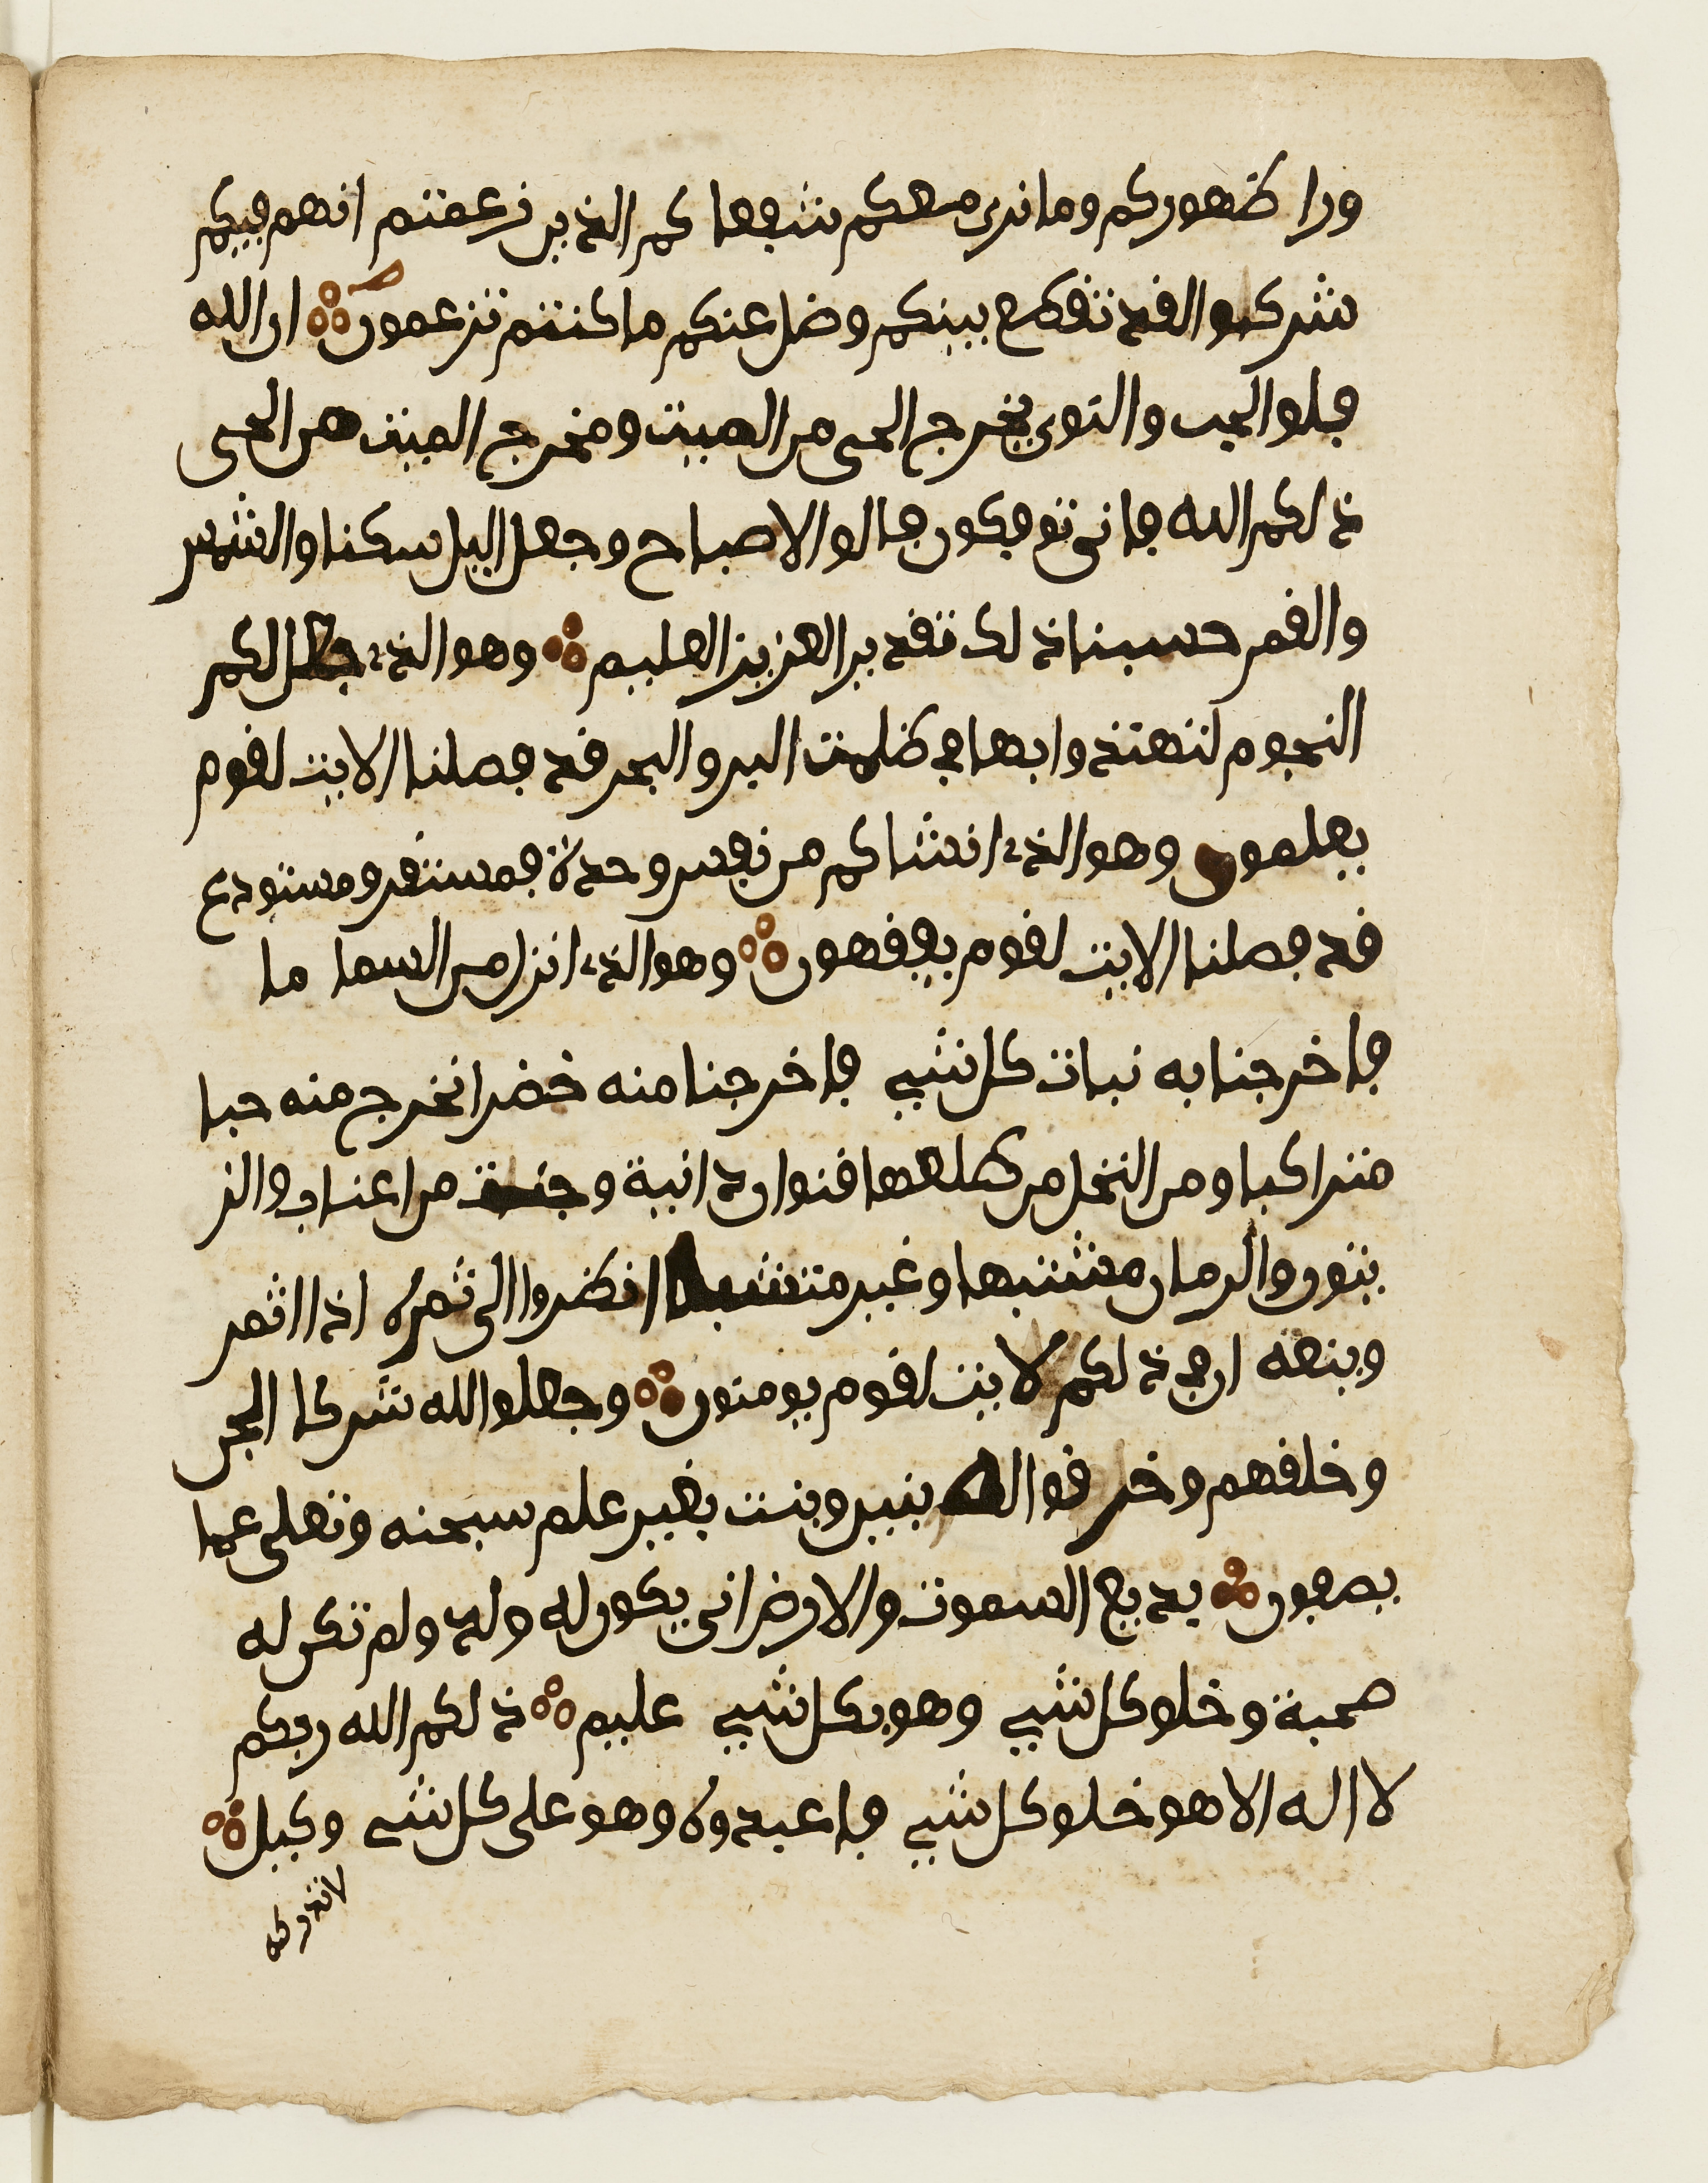 ورا ظهوركم وما نرى معكم شفعا كم الذين زعمتم انهم فيكم
شركوا لقد تقطع بينكم وضل عنكم ما كنتم تزعمون ان الله
فلق الحب والنوى يخرج الحى من الميت ومخرج الميت من الحى
ذلكم الله فانى توفكون فالق الاصباح وجعل اليل سكنا والشمس
والقمر حسبنا ذلك تقدير العزيز العليم وهو الذے جعل لكم
النجوم لتهتدوا بها في ظلمت البر والبحر قد فصلنا الايت لقوم
يعلمون وهو الذے انشاكم من نفس وحدة فمستقر ومستودع
قد فصلنا الايت لقوم يفقهون وهو الذے انزل من السما ما
فاخرجنا به نبات كل شيے فاخرجنا منه خضرا نخرج منه حبا
متراكبا ومن النخل من طلعها قنوان دانية وجنت من اعناب والز
يتون والرمان مشتبها وغير متشبه انظروا الى ثمره اذا اثمر
وينعه ان في ذلكم لايت لقوم يومنون وجعلوا لله شركا الجن
وخلقهم وخرقوا له بنين وبنت بغير علم سبحنه وتعلى عما
يصفون بديع السموت والارض انى يكون له ولد ولم تكن له
صحبة وخلق كل شيے وهو بكل شيے عليم ذلكم الله ربكم
لا اله الا هو خلق كل شيے فاعبدوه وهو على كل شے وكيل
لا تدركه